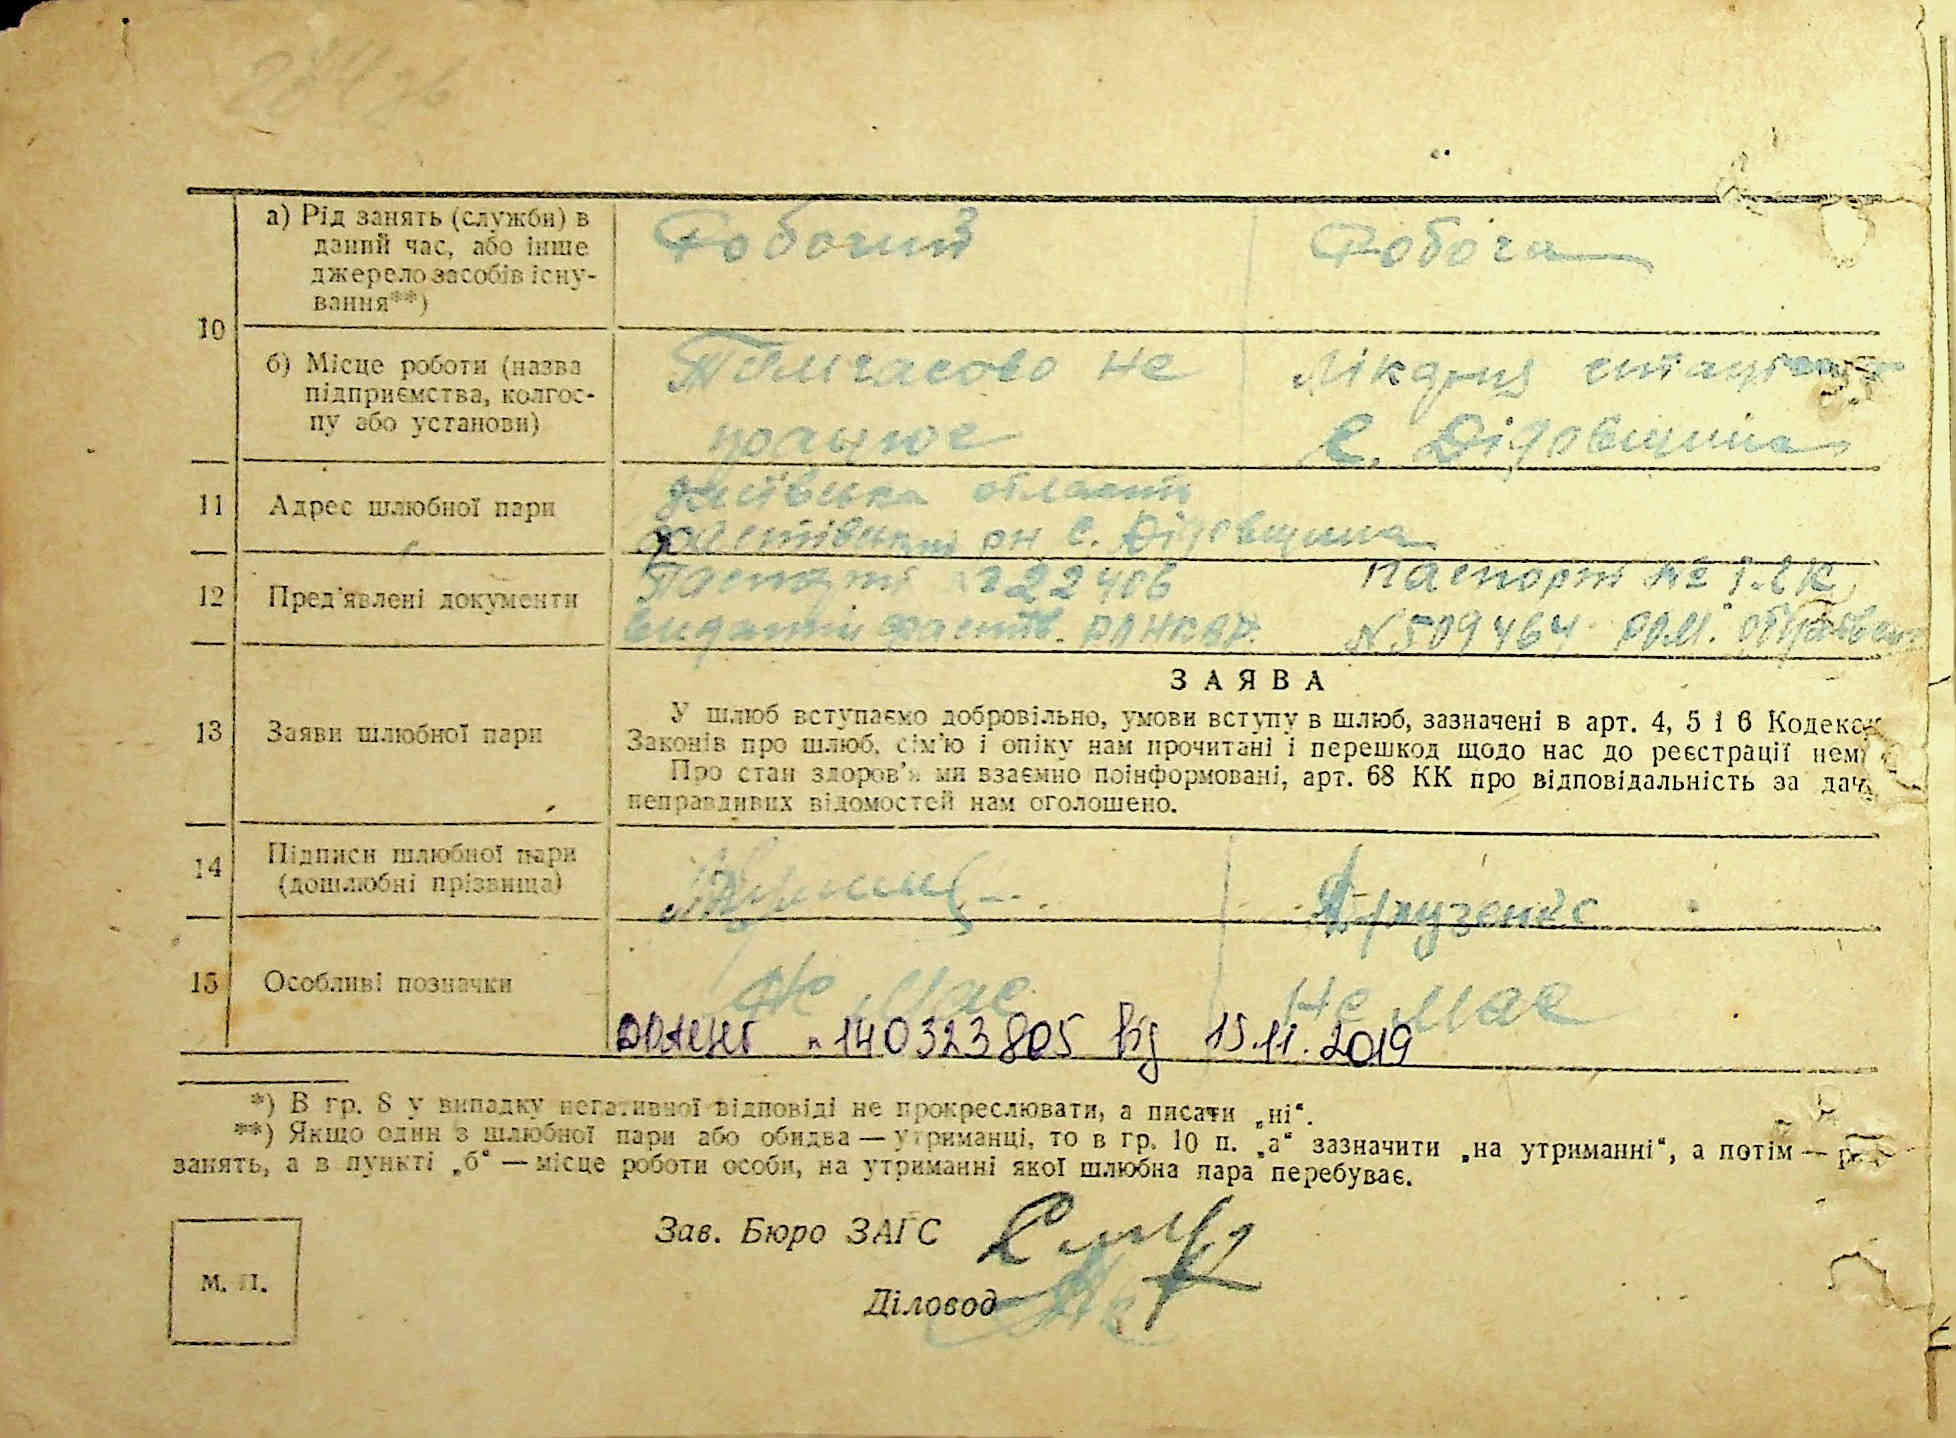 10
а) Рід занять (служби) в
даний час, або інше
джерело засобів існу-
вання**)
Робочий
Робоча
б) Місце роботи (назва
підприємства, колгос-
пу або установи)
Тимчасово не
працює
с. Дідовщина
11
Адрес шлюбної пари
область
рн с. Дідовщина
12
Пред'явлені документи
Паспорт
Паспорт №
видатий
N 509464
13
Заяви шлюбної пари
ЗАЯВА
У шлюб вступаємо добровільно, умови вступу в шлюб, зазначені в арт. 4, 5 і 6 Кодекс
Законів про шлюб, сім'ю і опіку нам прочитані і перешкод щодо нас до реєстрації нем
Про стан здоров'я ми взаємно поінформовані, арт. 68 КК про відповідальність за дач
неправдивих відомостей нам оголошено.
14
Підписи шлюбної пари
(дошлюбні прізвища)
15
Особливі позначки
Не має
Не має
140323805 від 15.11.2019
*) В гр. 8 у випадку негативної відповіді не прокреслювати, а писати „ні“.
**) Якщо один з шлюбної пари або обидва — утриманці, то в гр. 10 п. „а“ зазначити „на утриманні“, а потім —
занять, а в пункті „б“ — місце роботи особи, на утриманні якої шлюбна пара перебуває.
Зав. Бюро ЗАГС
Діловод
М. П.